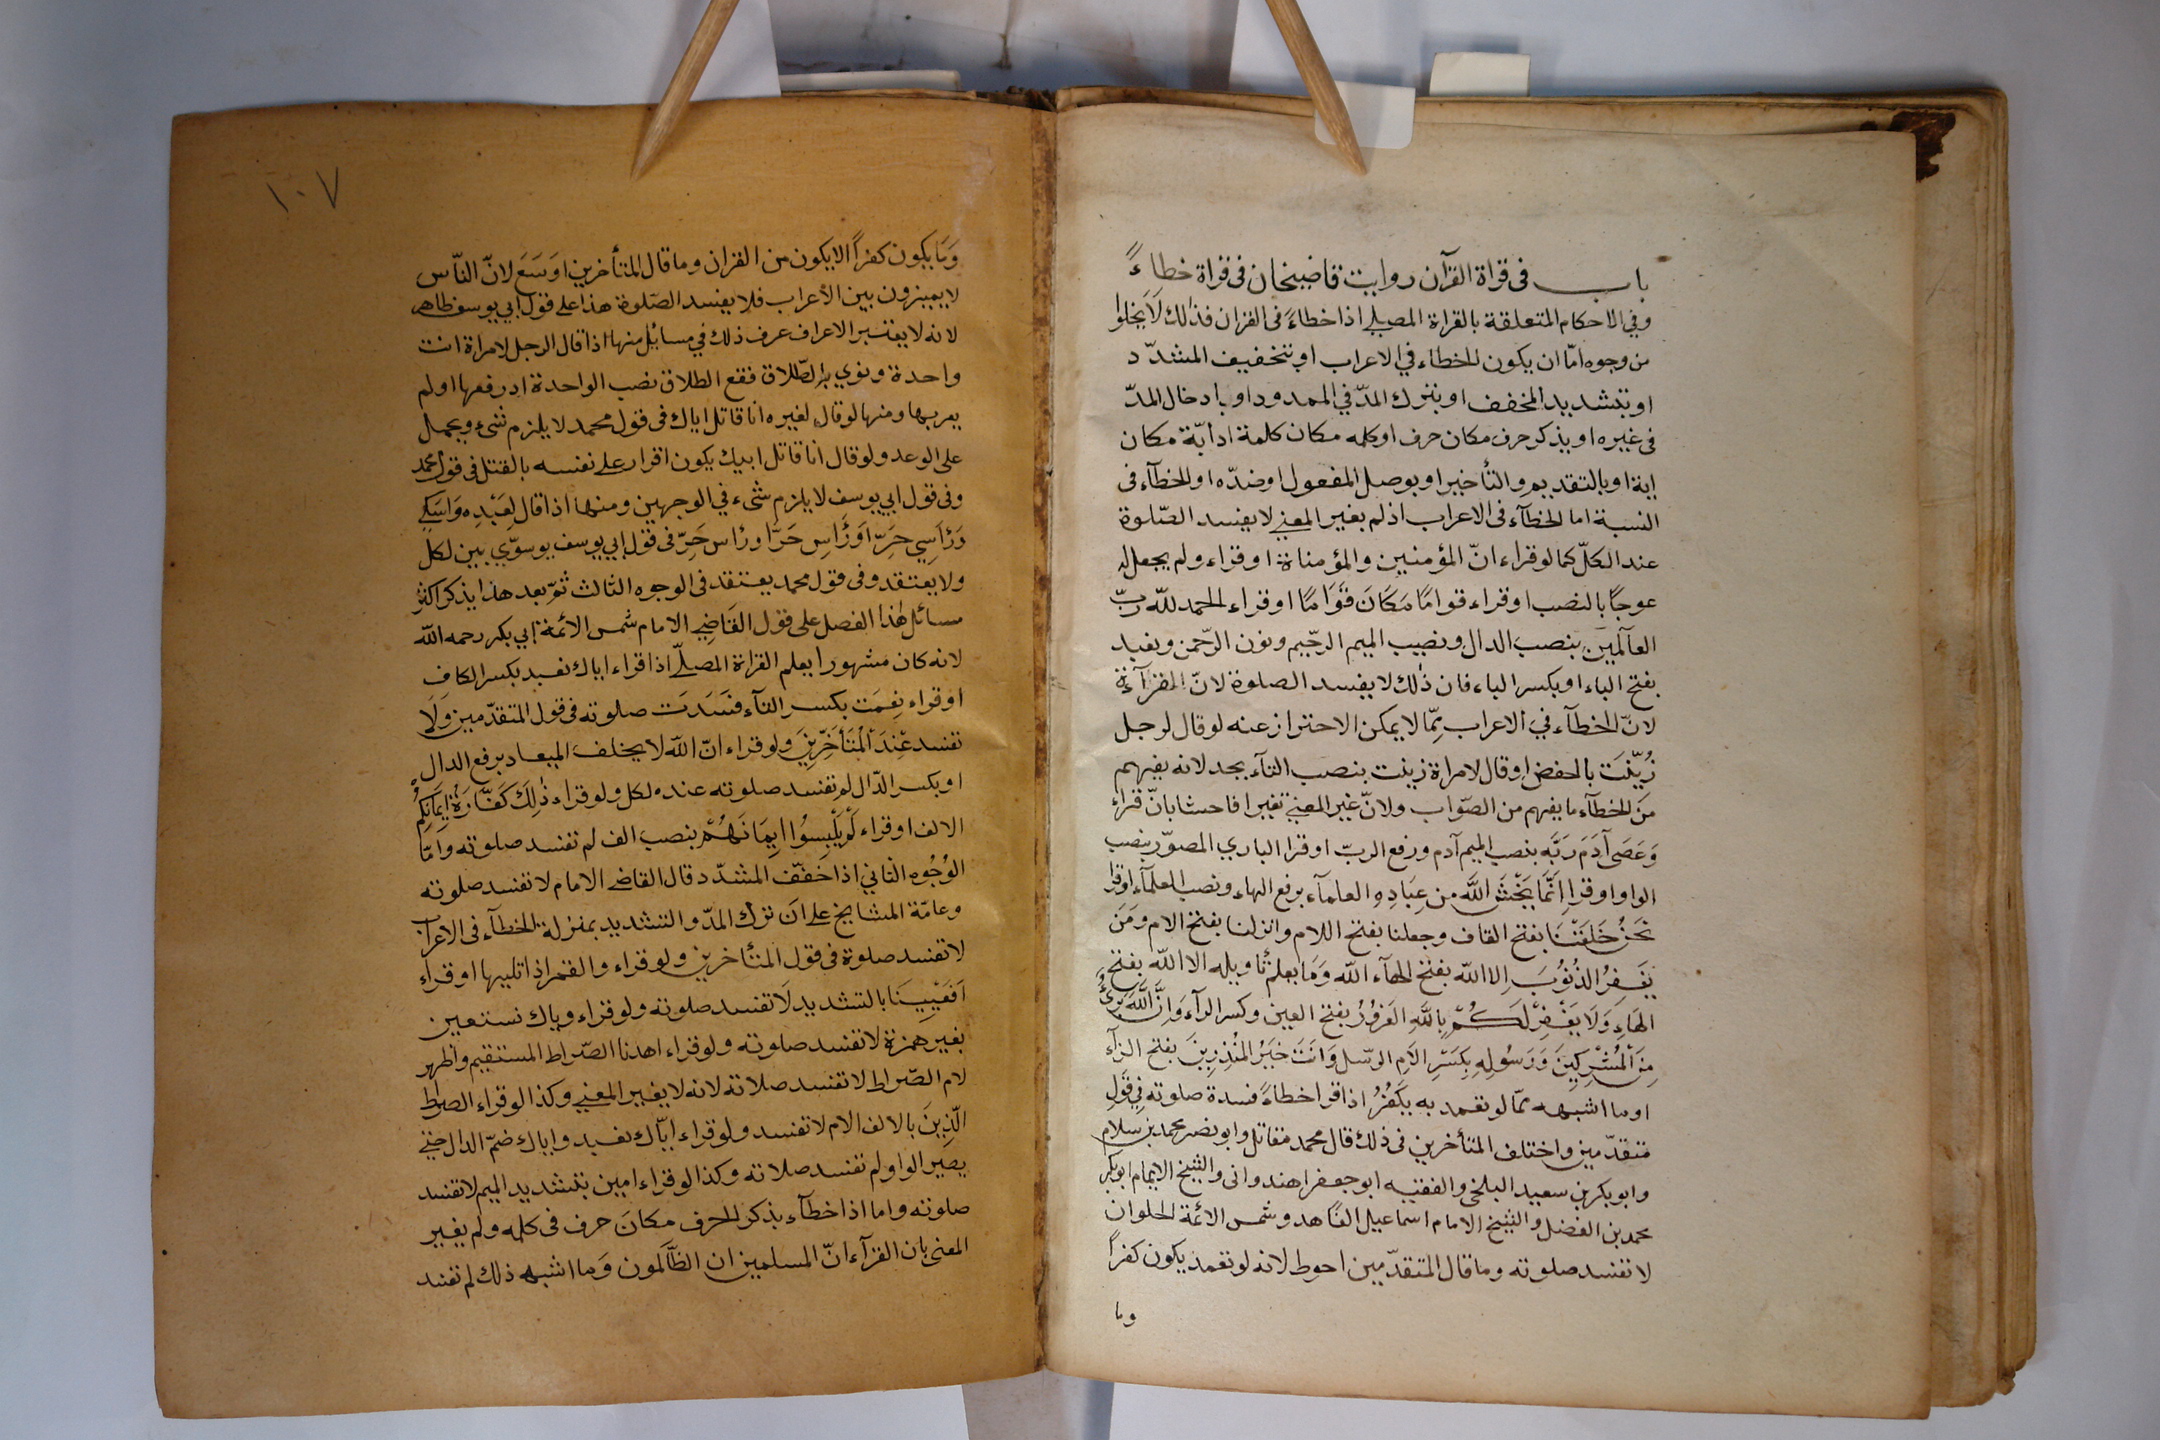 باب فى قراة القرآن روايت قاضيخان فى قراة خطاءً
وفي الاحكام المتعلقة بالقراة المصلي اذا خطاءً فى القران فذلك لَا يخلوا
من وجوه امّا ان يكون للخطاء في الاعراب او بتخفيف المشدّد
او بتشديد المخفف او بترك المدّ في الممدود او بادخال المدّ
فى غيره او بذكر حرف مكان حرف او كلمه مكان كلمة اداٰيّة مكان
اية او بالتقديم والتأخير او بوصل المفعول او ضدّه او الخطآء فى
النسبة اما الخطآء فى الاعراب اذ لم يغير المعني لا يفسد الصّلوة
عند الكلّ كما لو قراء انّ المؤمنين والمؤمناة او قراء ولم يجعل له
عوجًا بالنصب او قراء قوامًا مَكَانَ قَوَامًا او قراء الحمد للّه ربّ
العاٰلمينَ بنصبَ الدال ونصب الميم الرحّيم ونون الرحّمن ونعبد
بفتح الباء او بكسر الباء فان ذٰلك لا يفسد الصلوة لانّ القرآءة
لانّ الخطآء في الاعراب مِمّا لا يمكن الاحتراز عنه لو قال لرجل
زَنَيْتَ بالخفض او قال لامراة زينت بنصب التآء يحد لانه يفهم
مَن للخطآء ما يفهم من الصّواب ولانّ غير المعني تغيرا فاحشا بانّ قراء
وَعَصَىٓ آدَمَ رَبَّه بنصب الميم آدم ورفع الربّ او قرا الباري المصوّر بنصب
الواو او قرا اِنَّمَا يَخْشَى اللّٰهَ من عِبَادِهِ العلمآء برفع الهاء ونصب العلمآء او قرا
نَحْنُ خَلَقَنَا بفتح القاف وجعلنا بفتح اللام وانزلنا بفتح الام ومَنَ
يَغفِرُ الذُنُوبَ الا اللّه بفتح الهآء اللّه وَمَا يعلم تأويله الا اللّه بفتح
الهَاءِ وَلَا يَغْفِرْ لَكُمْ بِاللّٰهِ الغَرُوْرُ بفتح الغين وكسر الرآء وَاِنَّ اللّٰهَ بَرِئٌ
مِنَ الْمُشْرِكِينَ وَرَسُولِهِ بِكَسَرِ الاَمِ الرسّل وَاَنْتَ خَيرُ المُنْذِرِينَ بفتح الزآء
او ما اشبهه ممّا لو تعمد به يكَفُرُ اذا قرا خطاءً فسدة صلوته فِي قَولِ
متقدّمين واختلف المتأخرين فى ذلك قال محمد مقاتل وابو نصر محمد بن سلام
وابو بكر بن سعيد البلخى والفقيه ابو جعفر اهندوانى والشيخ الايمام ابوبكر
محمد بن الفضل والشيخ الامام اسماعيل الفاهد وشمس الائمة الحلوان
لا تفسد صلوته وما قال المتقدّمين احوط لانه لو تعمد يكون كفرًا
وما
١٠٧
وَمَا يكون كفراً الا يكون من القران وما قال المتأخرين اوسَعَ لانّ النّاس
لا يميزون بين الأعراب فلا يفسد الصّلوة هذا على قول ابي يوسف ظاهر
لانه لا يعتبر الاعراف عرف ذلك في مسائل منها اذا قال الرجل لامراة انت
واحدة ونوي به الطّلاق فقع الطلاق نصب الواحدة اد رفعها او لم
يعربها ومنها لو قال لغيره انا قاتل اياك فى قول محمد لا يلزم شىء ويحمل
على الوعد ولو قال انا قاتل ابيك يكون اقرار على نفسه بالقتل فى قول محمد
وفى قول ابي يوسف لا يلزم شىء في الوجهين ومنها اذا قال لِعَبْدِه
وَرَاَسِي حَرِرّ اَوَرَاَسِ حَرّا وراس حَرِّ فى قول ابي يوسف يوسوّي بين لكلّ
ولا يعتقد وفى قول محمد يعتقد فى الوجوه الثالث ثمّ بعد هذا يذكر اكثر
مسائل هٰذا الفصل على قول القَاضِي الامام شمس الائمة ابي بكر رحمه اللّه
لانه كان مشهورا بعلم القراة المصلّي اذا قراء اياك نعبد بكسر الكاف
او قراء نعِمَت بكسر التآء فسَدَت صلوته فى قول المتقدّمين وَلَا
تفسد عِنْدَ الْمَتَأَخّرِينَ ولو قراء انّ اللّه لا يخلف الميعاد برفع الدال
او بكسر الدّال لم تفسد صلوته عنده لكل ولو قراء ذٰلِكَ كَفَّارَةُ اِيمَانِكُمْ
الالف او قراء لَمْ يَلْبِسُوا اِيمَانَهُمْ بنصب الف لم تفسد صلوته وَامّا
الوُجُوه الثاني اذا خَفّفَ المشدّد قال القاضي الامام لا تفسد صلوته
وعامّة المشايخ على انَ ترك المدّ والتشديد بمنزلة للخطآء فى الاعراب
لا تفسد صلوة فى قول المتأخرين ولو قراء والقمر اذا تليها او قراء
اَفَعَيِيِنَا بالتشديد لَا تفسد صلوته ولو قراء وياك نستعين
بغير همزة لا تفسد صلوته ولو قراء اهدنا الصّراط المستقيم واظهر
لام الصّراط لا تفسد صلاته لانه لا يغير المعني وكذا لو قراء الصراط
الّذِينَ بالالف الام لا تفسد ولو قراء ايّاك نعبد واياك ضمّ الدال حتي
يصَير الواو لم تفسد صلاته وكذا لو قراء امين بتشديد الميم لا تفسد
صلوته واما اذا خطآء بذكر للحرف مكانَ حرف فى كلمه ولم يغير
المعنى بان القرآء انّ المسلمين ان الظّالمون وَما اشبه ذلك لم تفسد